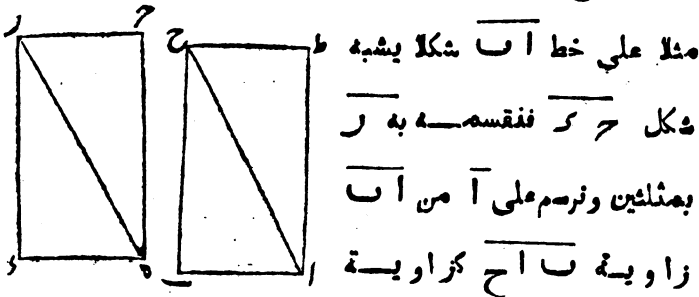 مثلا على خط ا ب شكلا يشبه
شكل حـ د فنقسمـه به ر
بمثلثين ونرسم على ا من ا ب
زاوية ب ا ح كزاوية
ر حـ ح ط
د ه ب ا